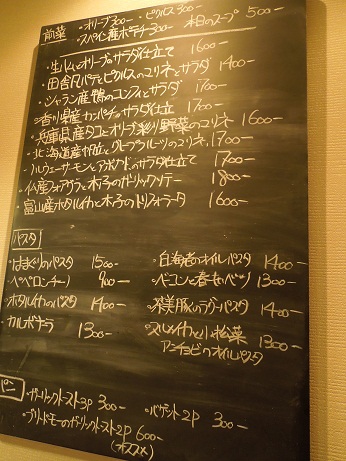 前菜 ・オリーブ300- ・ピクルス300-
・スペイン産ポテチ300- 本日のスープ 500-
・生ハムとオリーブのサラダ仕立て 1600-
・田舎風パテとピクルスのマリネとサラダ 1400-
・シャラン産鴨のコンフィとサラダ 1700-
・香川県産カンパチのサラダ仕立 1700-
・兵庫県産タコとオリーブ彩り野菜のマリネ 1600-
・北海道産帆立とグレープフルーツのマリネ 1700-
・ノルウェーサーモンとアボカドのサラダ仕立て 1700-
・仏産フォアグラと木の子のガーリックソテー 1800-
・富山産ホタルイカと木の子のトリフォラータ 1600-
パスタ
・はまぐりのパスタ 1500-
・ペペロンチーノ 900-
・ホタルイカのパスタ 1400-
・カルボナーラ 1300-
・白海老のオイルパスタ 1400-
・ベーコンと春キャベツ 1300-
・豚のラグーパスタ 1400-
・スルメイカと小松菜 1300-
アンチョビのオイルパスタ
パン
・ガーリックトースト3P 300- ・バゲット2P 300-
・ブリードモーのガーリックトースト2P 600-
(オススメ)